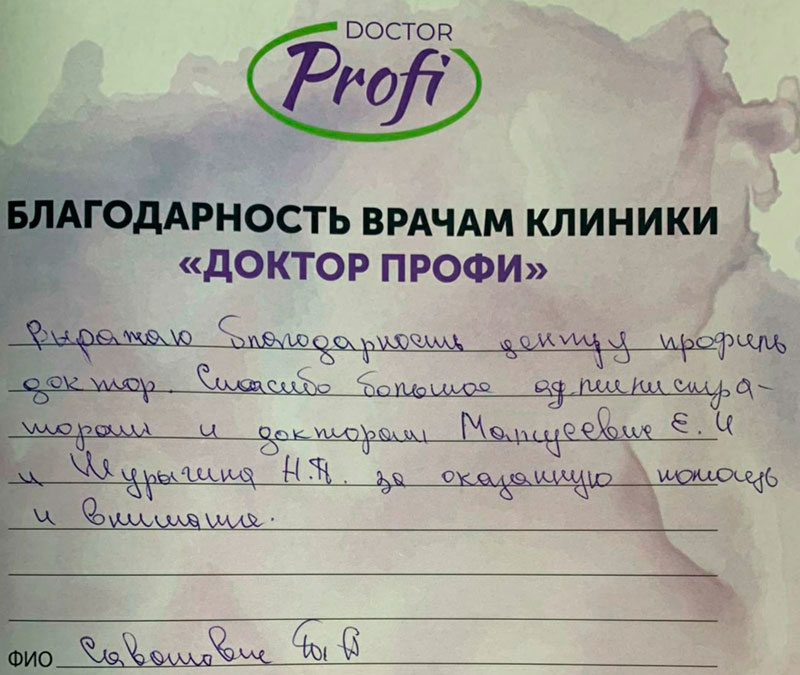 DOCTOR
Profi
БЛАГОДАРНОСТЬ ВРАЧАМ КЛИНИКИ
«ДОКТОР ПРОФИ»
Выражаю благодарность центру профиль
доктор. Спасибо большое администра-
торам и докторам Е. И
и Шурыгина Н.П. за оказанную помощь
и внимание.
ФИО